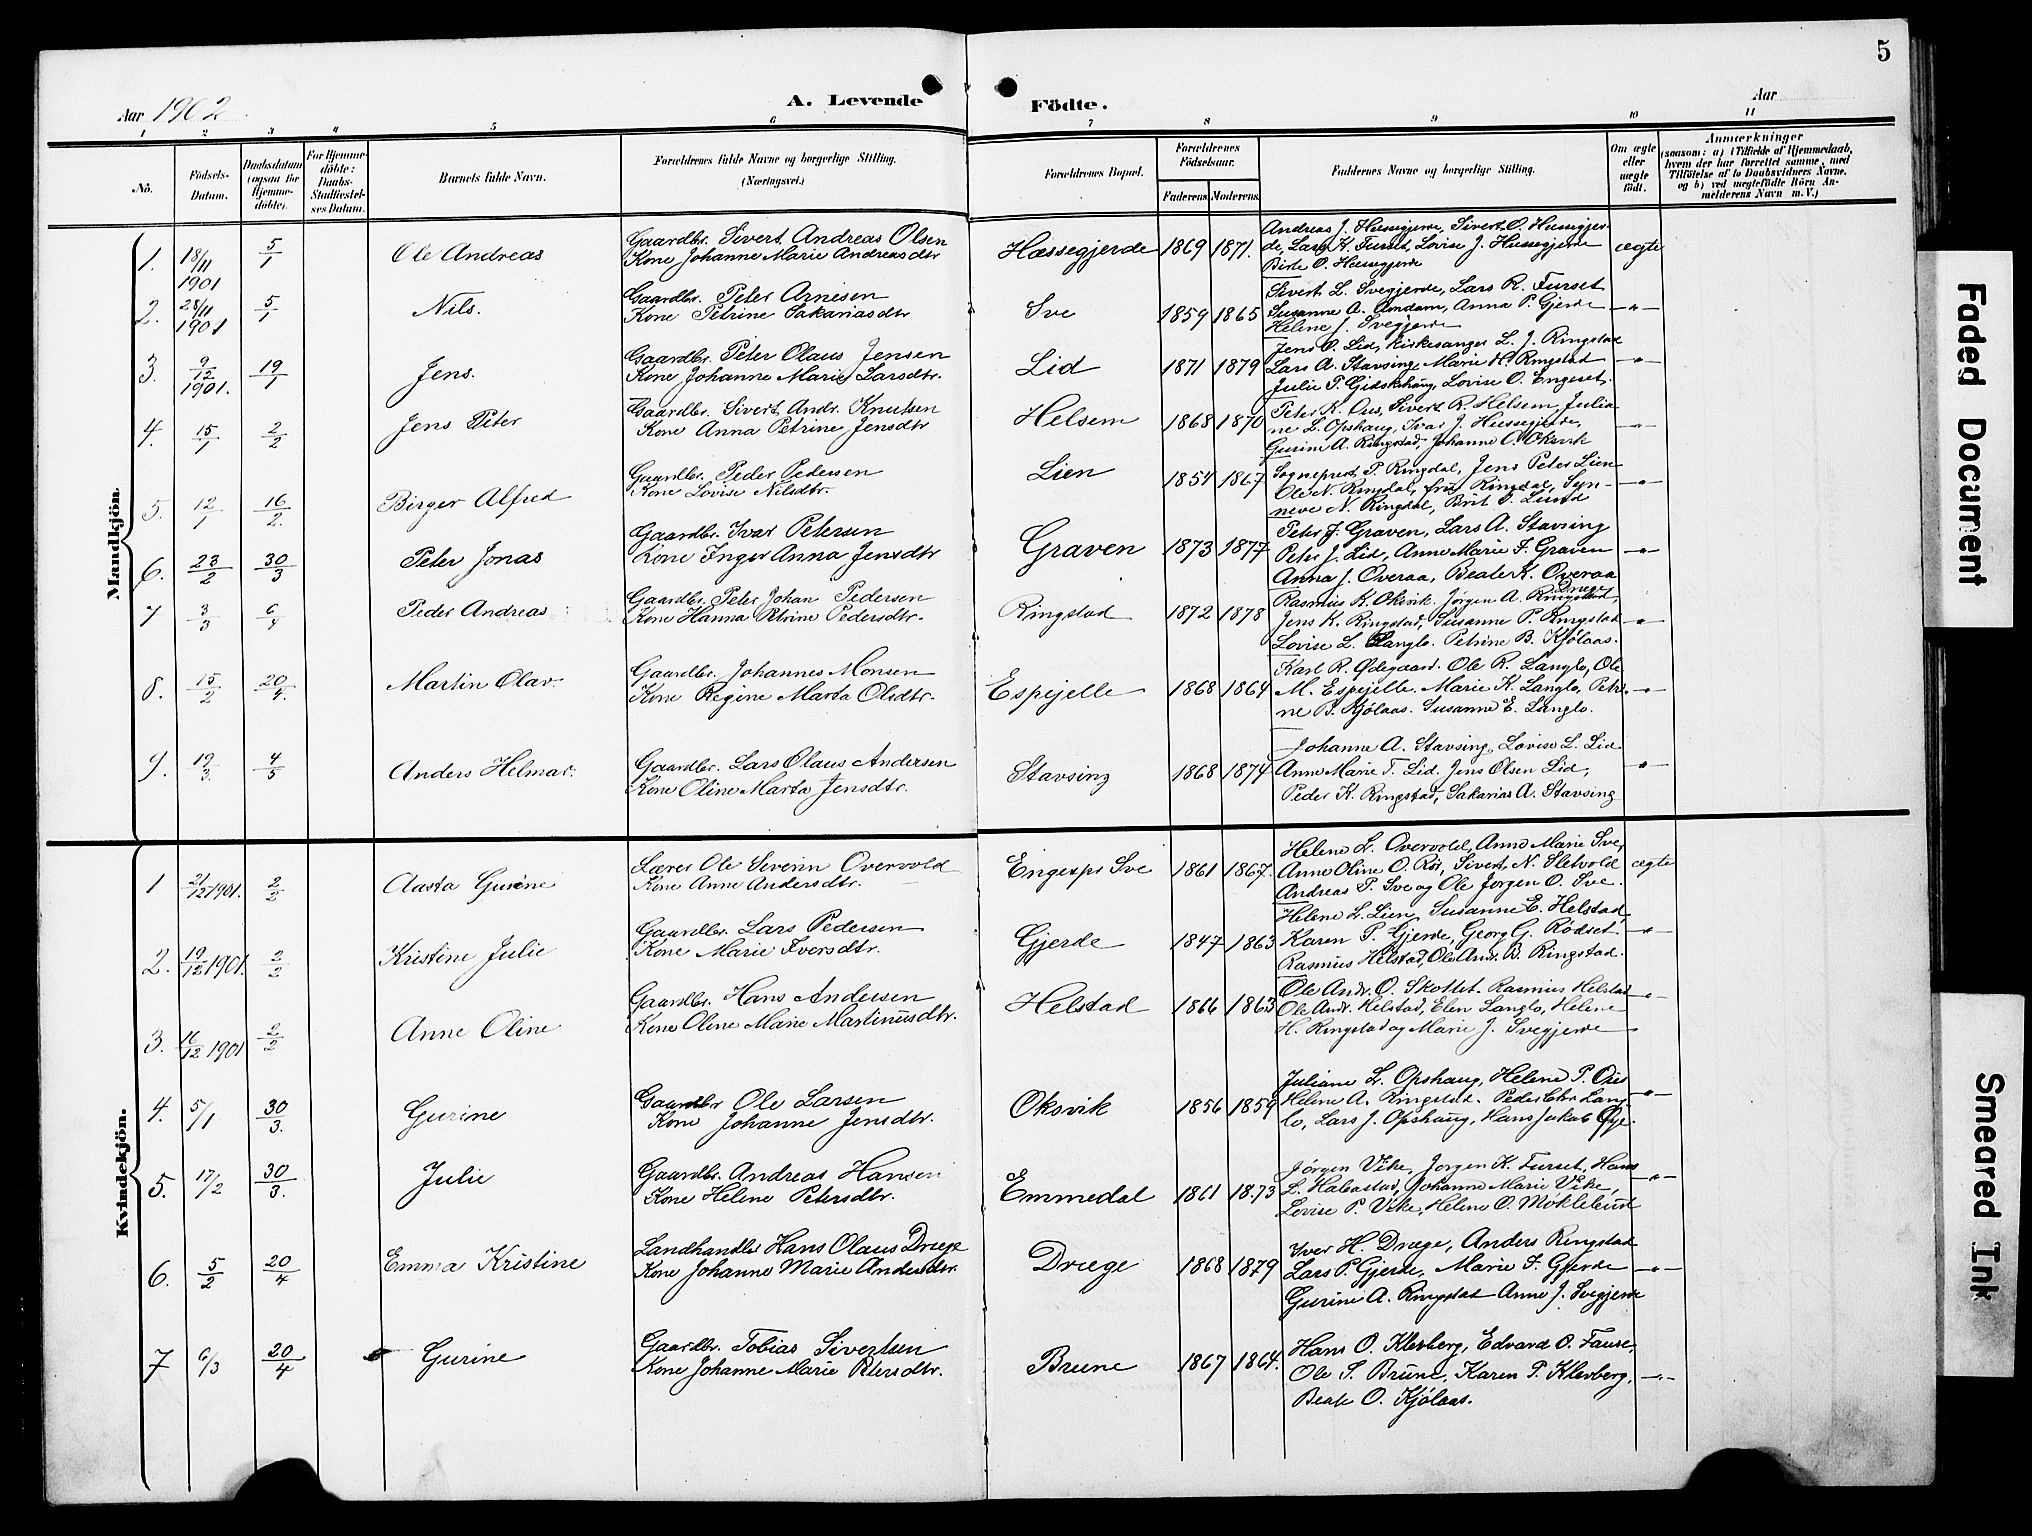 5
Aar 1902 A. Levende Födte. Aar
1 2 3 4 5 6 7 8 9 10 11
No.
Födsels-
Datum.
Daabsdatum
(ogsaa for
Hjemme-
döbte).
For Hjemme-
döbte:
Daabs-
Stadfæstel-
ses Datum.
Barnets fulde Navn.
Forældrenes fulde Navne og borgerlige Stilling.
(Næringsvei.)
Forældrenes Bopæl.
Forældrenes
Födselsaar.
Faderens. Moderens.
Faddernes Navne og borgerlige Stilling.
Om ægte
eller
uægte
födt.
Anmærkninger
(saasom: a) i Tilfælde af Hjemmedaab,
hvem der har forrettet samme, med
Tilföielse af to Daabsvidners Navne,
og b) ved uægtefödte Börn An-
melderens Navn m.V.)
Mandkjön.
1. 18/11 1901 5/1 Ole Andreas
Gaardbr. Sivert Andreas Olsen
Kone Johanne Marie Andreasdtr
Hæssegjerde 1869 1871.
Andreas J. Hussegjerde, Sivert O. Hussgjer-
de, Lars K. Furset, Lovise J. Hussegjerde
Birte O. Hussegjerde
ægte
2. 28/11 1901 5/1 Nils.
Gaardbr. Peter Arnesen
Kone Petrine Sakariasdtr
Sve 1859 1865
Sivert L. Svegjerde, Lars R. Furset
Susanne A. Amdam, Anna P. Gjerde
Helene J. Svegjerde
-"-
3. 9/12 1901. 19/1 Jens.
Gaardbr. Peter Olaus Jensen
Kone Johanne Marie Larsdtr.
Lid 1871 1879
Jens O. Lid, kirkesanger L. J. Ringstad
Lars A. Stavsing, Marie H. Ringstad
Julie P. Gidskehaug, Lovise O. Engeset.
-"-
4. 15/1 2/2 Jens Peter
Gaardbr. Sivert Andr. Knutsen
Kone Anna Petrine Jensdtr
Helsem 1868 1870
Peter K. Ous, Sivert R. Helsem, Julia-
ne L. Opshaug, Ivar J. Hussegjerde,
Gurine A. Ringstad, Johanne O. Oksvik
-"-
5. 12/1 16/2. Birger Alfred
Gaardbr. Peder Pedersen
Kone Lovise Nilsdtr.
Lien 1854 1867
Sogneprest P. Ringdal, Jens Peter Lien
Ole N. Ringdal, frø Ringdal, Syn-
neve N. Ringdal, Brit J. Lunde
-"-
6. 23/2 30/3 Peter Jonas
Gaardbr. Ivar Petersen
Kone Inger Anna Jensdtr
Graven 1873 1877
Peter J. Graven, Lars A. Stavsing
Peter J. Lid, Anne Marie I. Graven
Anna J. Overaa, Beate K. Overaa
-"-
7 3/3 6/4 Peder Andreas
Gaardbr. Peter Johan Pedersen
Kone Hanna Petrine Pedersdtr.
Ringstad 1872 1878
Rasmus K. Oksvik. Jørgen A. Ringstad,
Jens K. Ringstad, Susanne P. Ringstad
Lovise L. Langlo. Petrine B. Kjølaas.
-"-
8. 15/2 20/4. Martin Olav.
Gaardbr. Johannes Monsen
Kone Regine Marta Olsdtr.
Espejelle 1868 1864
Karl R. Ødegaard. Ole R. Langlo, Ole
M. Espejelle. Marie K. Langlo, Petri-
ne B. Kjølaas. Susanne E. Langlo.
-"-
9. 19/3. 4/5 Anders Helmar.
Gaardbr. Lars Olaus Andersen
Kone Oline Marta Jensdtr.
Stavsing 1868 1874
Johanne A. Stavsing, Lovise L. Lid
Anne Marie T. Lid. Jens Olsen Lid,
Peder K. Ringstad, Sakarias A. Stavsing
-"-
Kvindekjön.
1 21/12 1901. 2/2 Aasta Gurine
Lærer Ole Severin Overvold
Kone Anne Andersdtr.
Engesps Sve 1861 1867.
Helene L. Overvold, Anne Marie Sve,
Anne Oline O. Rør, Sivert N. Sletvold
Andreas P. Sve og Ole Jørgen O. Sve.
ægte
2. 19/12 1901. 2/2 Kristine Julie
Gaardbr. Lars Pedersen
Kone Marie Iversdtr.
Gjerde 1847 1863
Helene L. Lien, Susanne E. Helstad,
Karen P. Gjerde, Georg G. Rødset
Rasmus Helstad, Ole Andr. B. Ringstad.
-"-
3. 16/12 1901 2/2 Anne Oline
Gaardbr. Hans Andersen
Kone Olene Marie Martinusdtr.
Helstad 1866 1863
Ole Andr. O. Skottet. Rasmus Helstad
Ole Andr. Helstad, Elen Langlo, Helene
H. Ringstad og Marie J. Svegjerde
-"-
4. 5/1 30/3. Gurine
Gaardbr Ole Larsen
Kone Johanne Jensdtr.
Oksvik 1856 1859
Juliane L. Opshaug, Helene P. Ous
Helene A. Ringstad. Peder Chr. Lang-
lo, Lars J. Opshaug, Hans Jakob Øye.
-"-
5. 17/2 30/3. Julie
Gaardbr. Andreas Hansen
Kone Helene Petersdtr.
Emmedal 1861 1873
Jørgen Vike, Jørgen K. Furset, Hans
L. Habostad, Johanne Marie Vike,
Lovise P. Vike, Helene O. Møklebust
-"-
6. 5/2 20/4 Emma Kristine
Landhandler Hans Olaus Dræge
Kone Johanne Marie Andersdtr.
Dræge 1868 1879
Iver H. Dræge, Anders Ringstad
Lars P. Gjerde, Marie I. Gjerde
Gurine A. Ringstad Anne J. Svegjerde
-"-
7 6/3 20/4 Gurine
Gaardbr. Tobias Sivertsen
Kone Johanne Marie Petersdtr.
Brune 1867 1864.
Hans O. Klevberg, Edvard O. Fause,
Ole S. Brune, Karen P. Klevberg,
Beate O. Kjølaas.
-"-
Faded Document
Smeared Ink